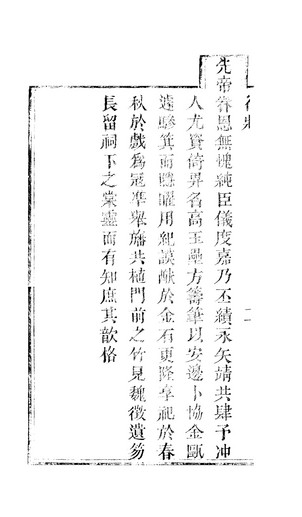 先帝眷恩無愧純臣儀度嘉乃丕績永矢靖共肆予冲
人尤資倚畀名高玉陛方籌筆以安邊卜協金甌
遽驂箕而曀曜用紀謨猷於金石更隆享祀於春
秋於戲爲冠準舉旛共植門前之竹見魏徵遺笏
長留祠下之棠靈而有知庶其歆格